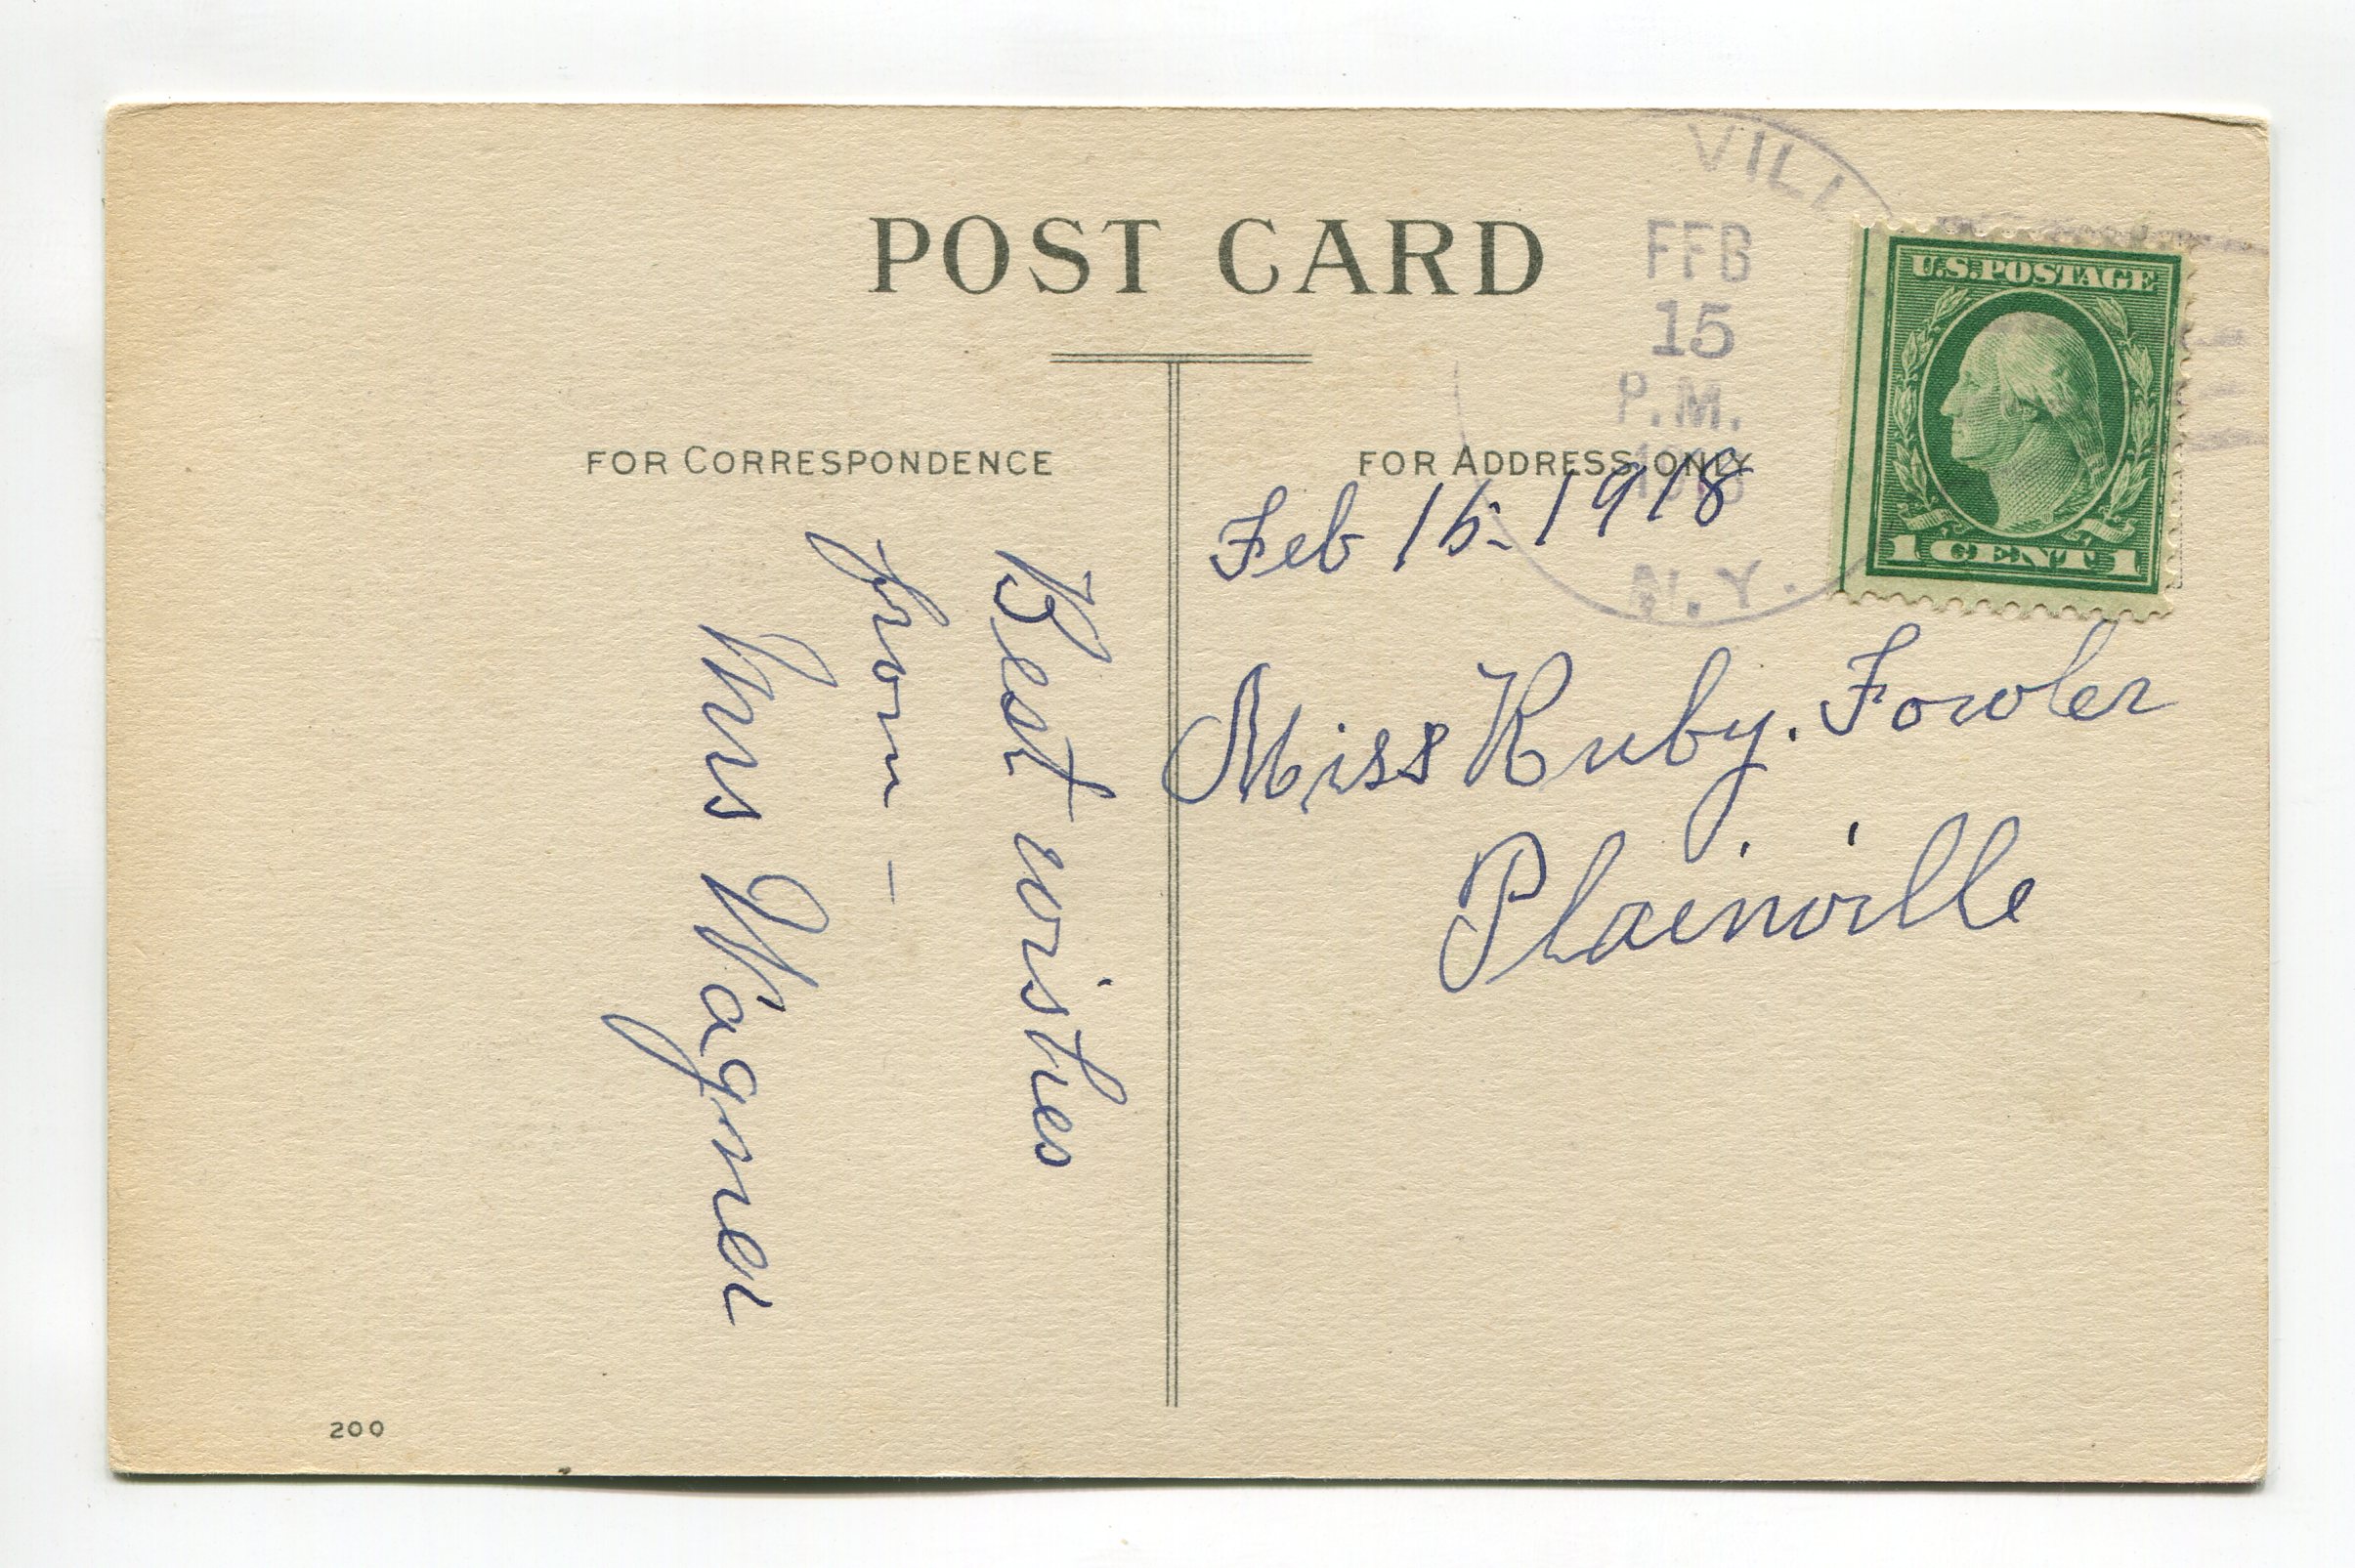 POST CARD
FOR CORRESPONDENCE
FOR ADDRESS ONLY
VILL
FEB
15
P.M.
N.Y.
U.S. POSTAGE
1 CENT 1
Feb 15-1918
Miss Ruby. Fowler
Plainville
Best wishes
from —
Mrs Wagner
200